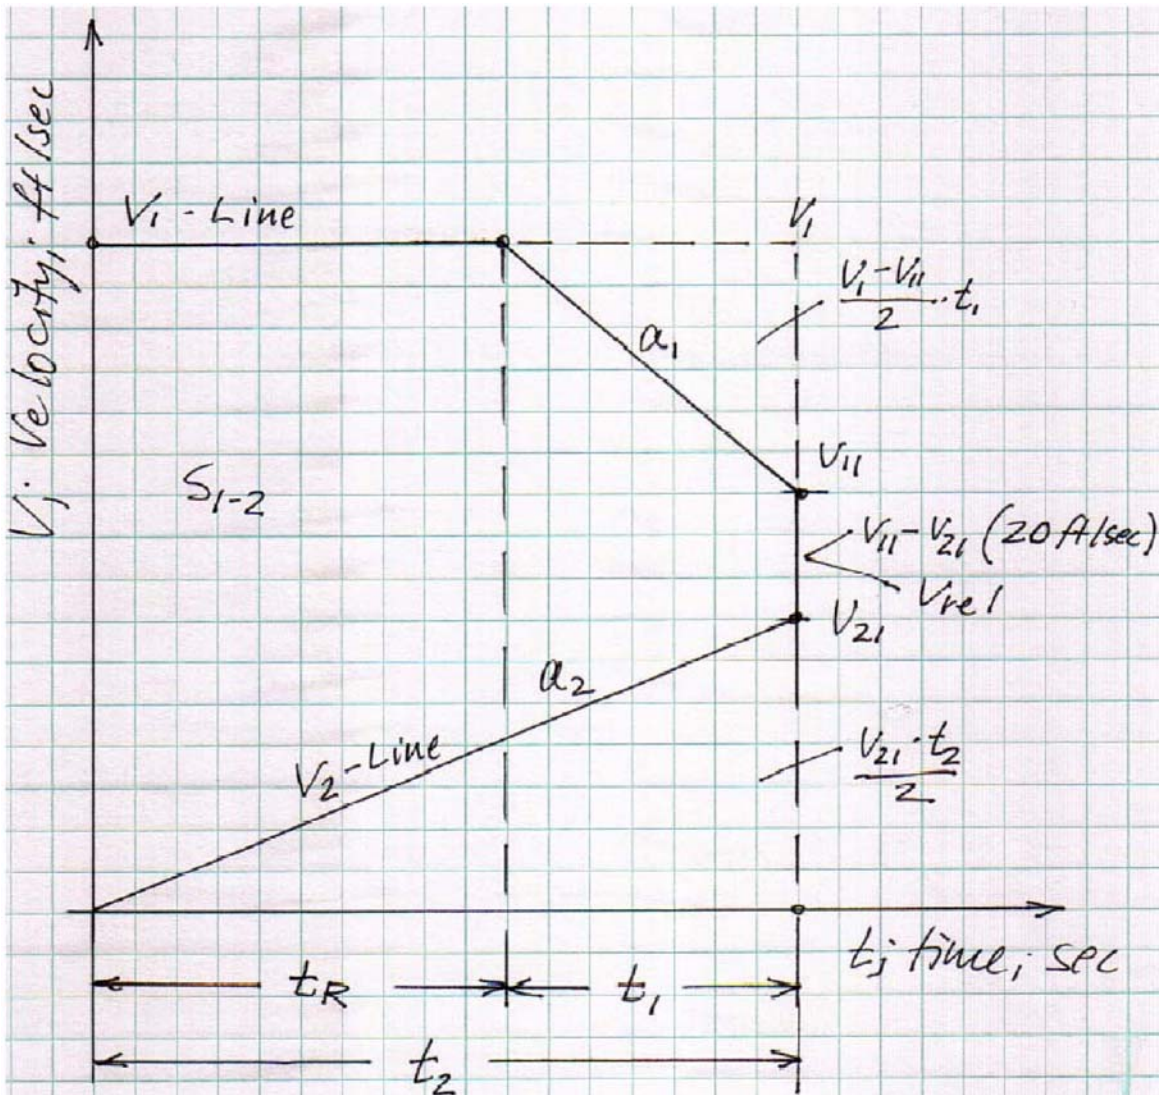 V; Velocity; ft/sec
V₁ - Line
V₁
(V₁ - V₁₁)/2 · t₁
a₁
V₁₁
S₁₋₂
V₁₁ - V₂₁ (20 ft/sec)
Vrel
V₂₁
a₂
V₂ - Line
(V₂₁ · t₂)/2
t; time; sec
tR
t₁
t₂